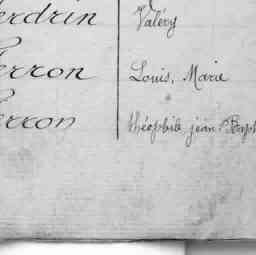 erdrin Valéry
erron Louis, Marie
erron théophile jean Bapt